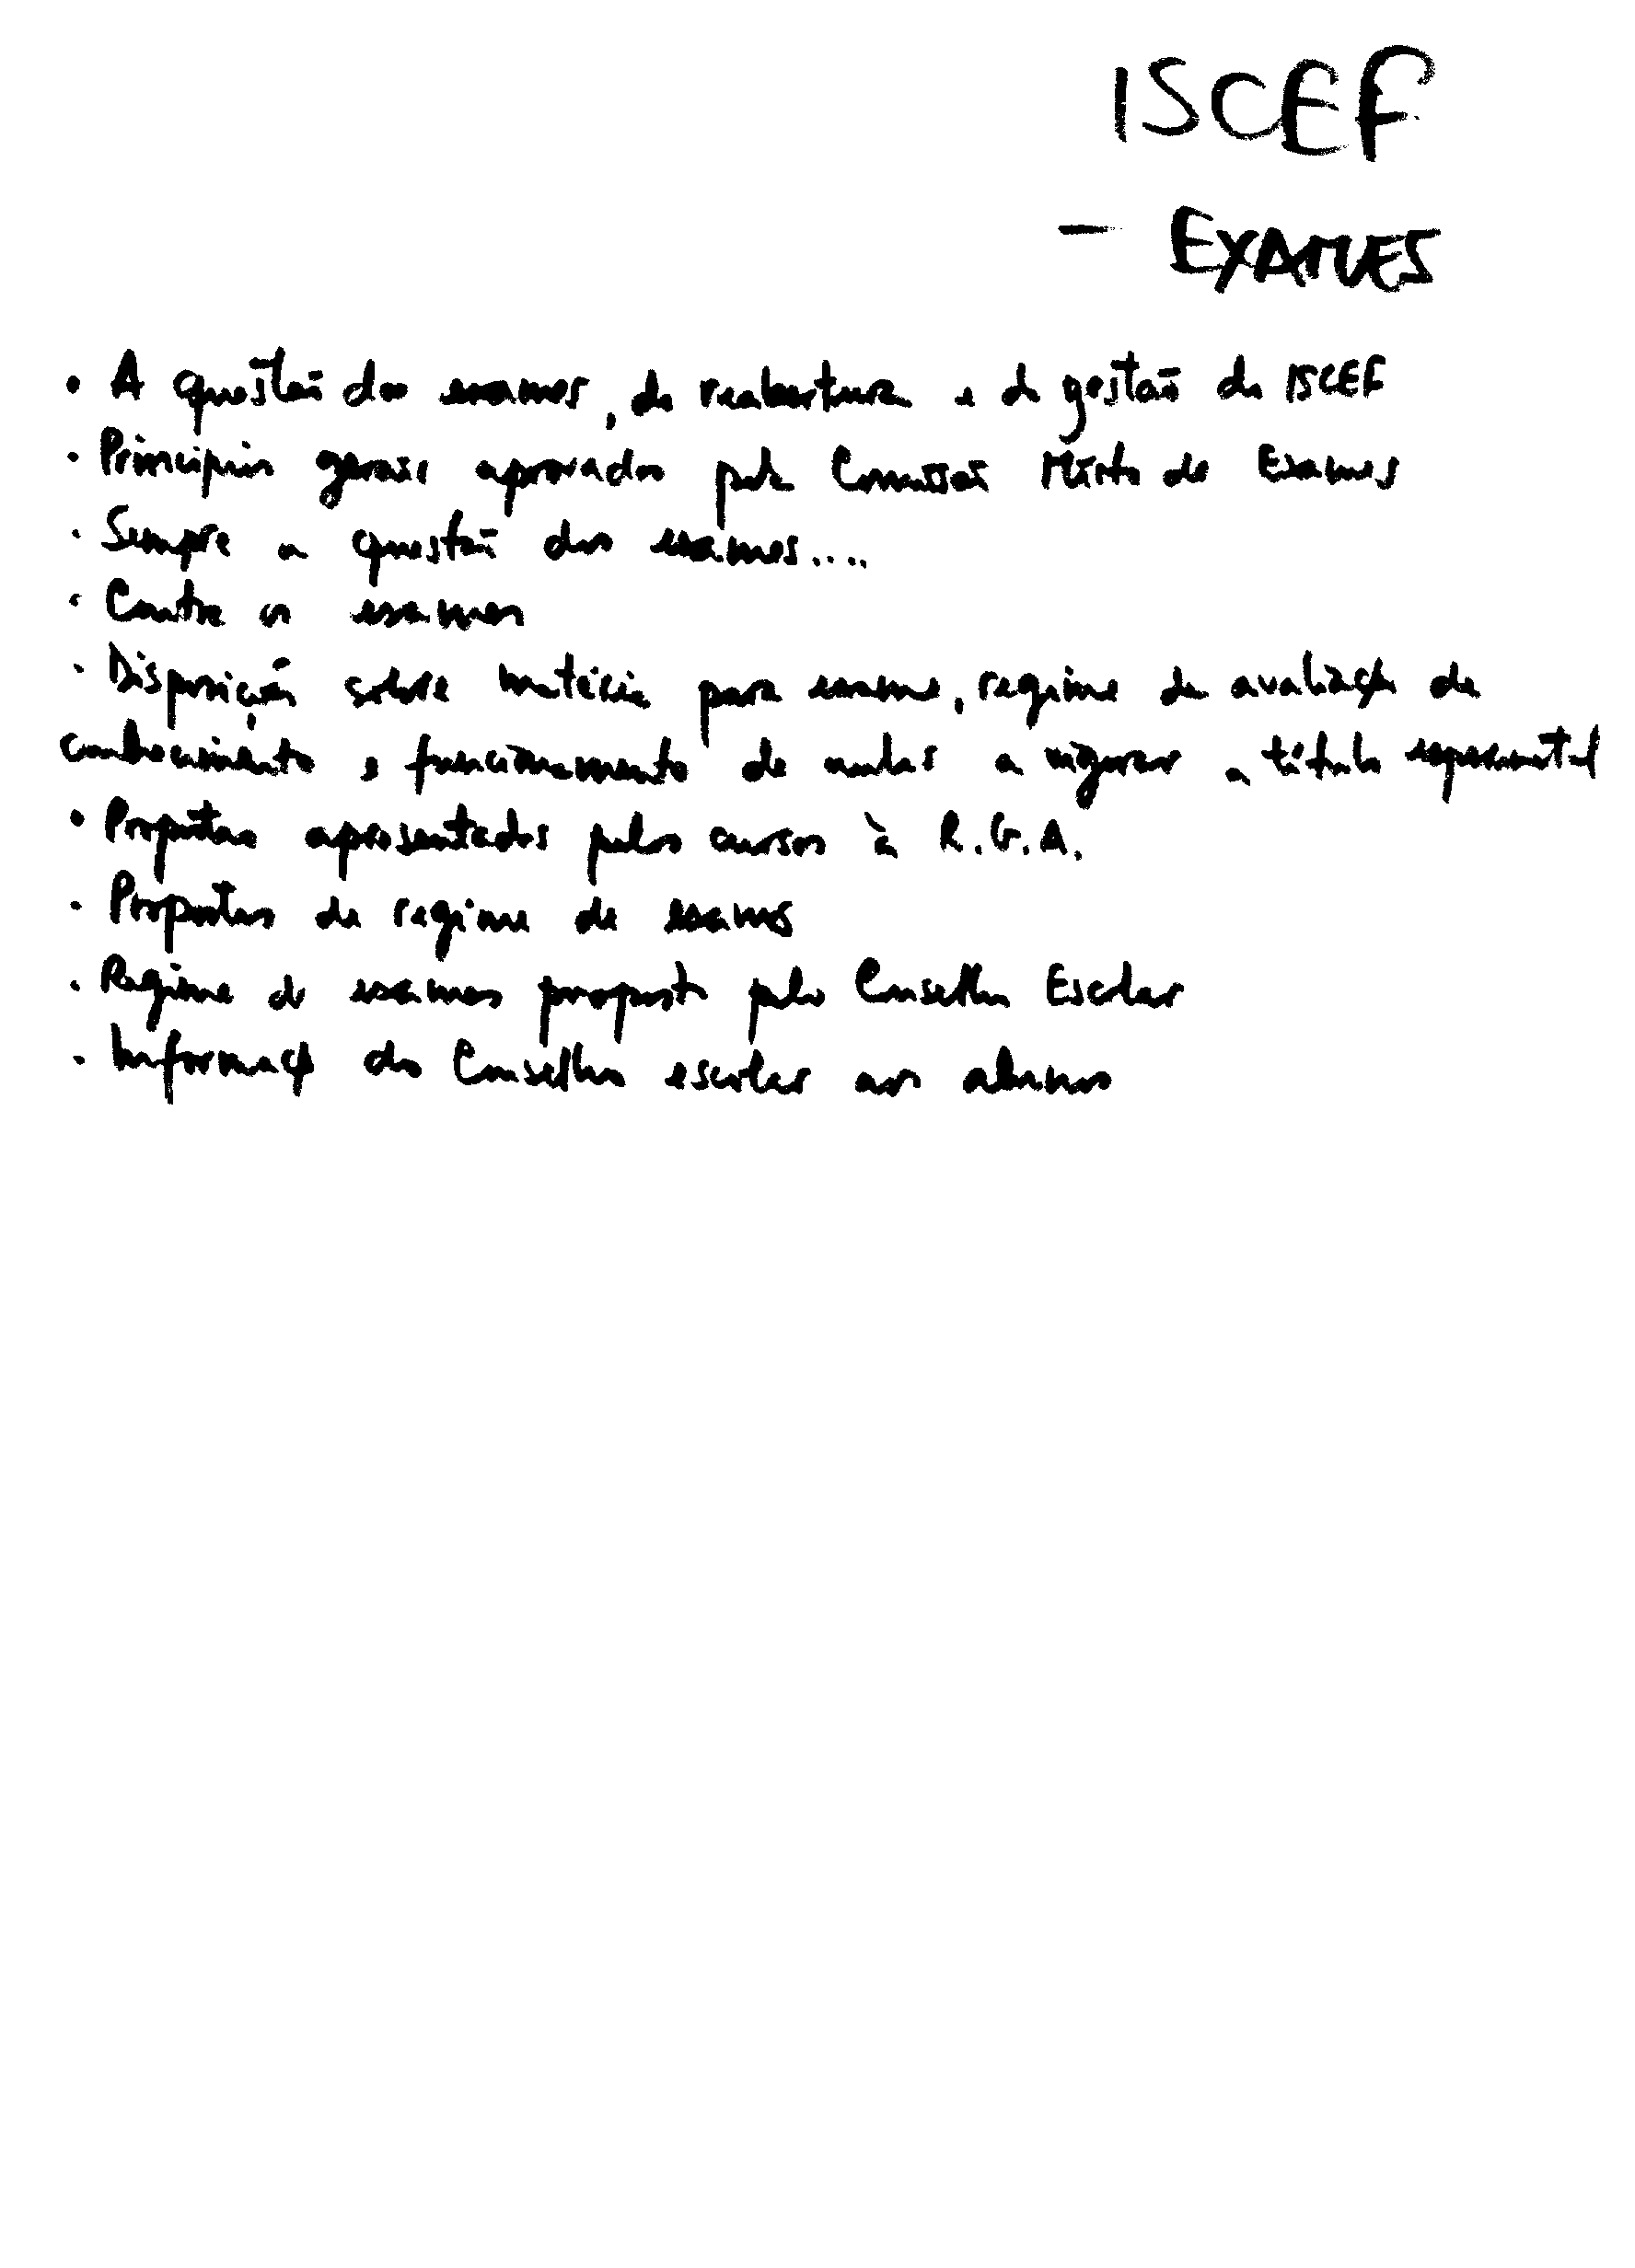 ISCEF
- EXAMES
• A questão dos exames, da reabertura e da gestão do ISCEF
• Princípios gerais aprovados pela Comissão Mista de Exames
• Sempre a questão dos exames....
• Contra os exames
• Disposição sobre matéria para exame, regime de avaliação de
conhecimento e funcionamento de aulas a vigorar a título experimental
• Propostas apresentadas pelos cursos à R.G.A.
• Propostas de regime de exames
• Regime de exames proposto pelo Conselho Escolar
• Informaç do Conselho escolar aos alunos